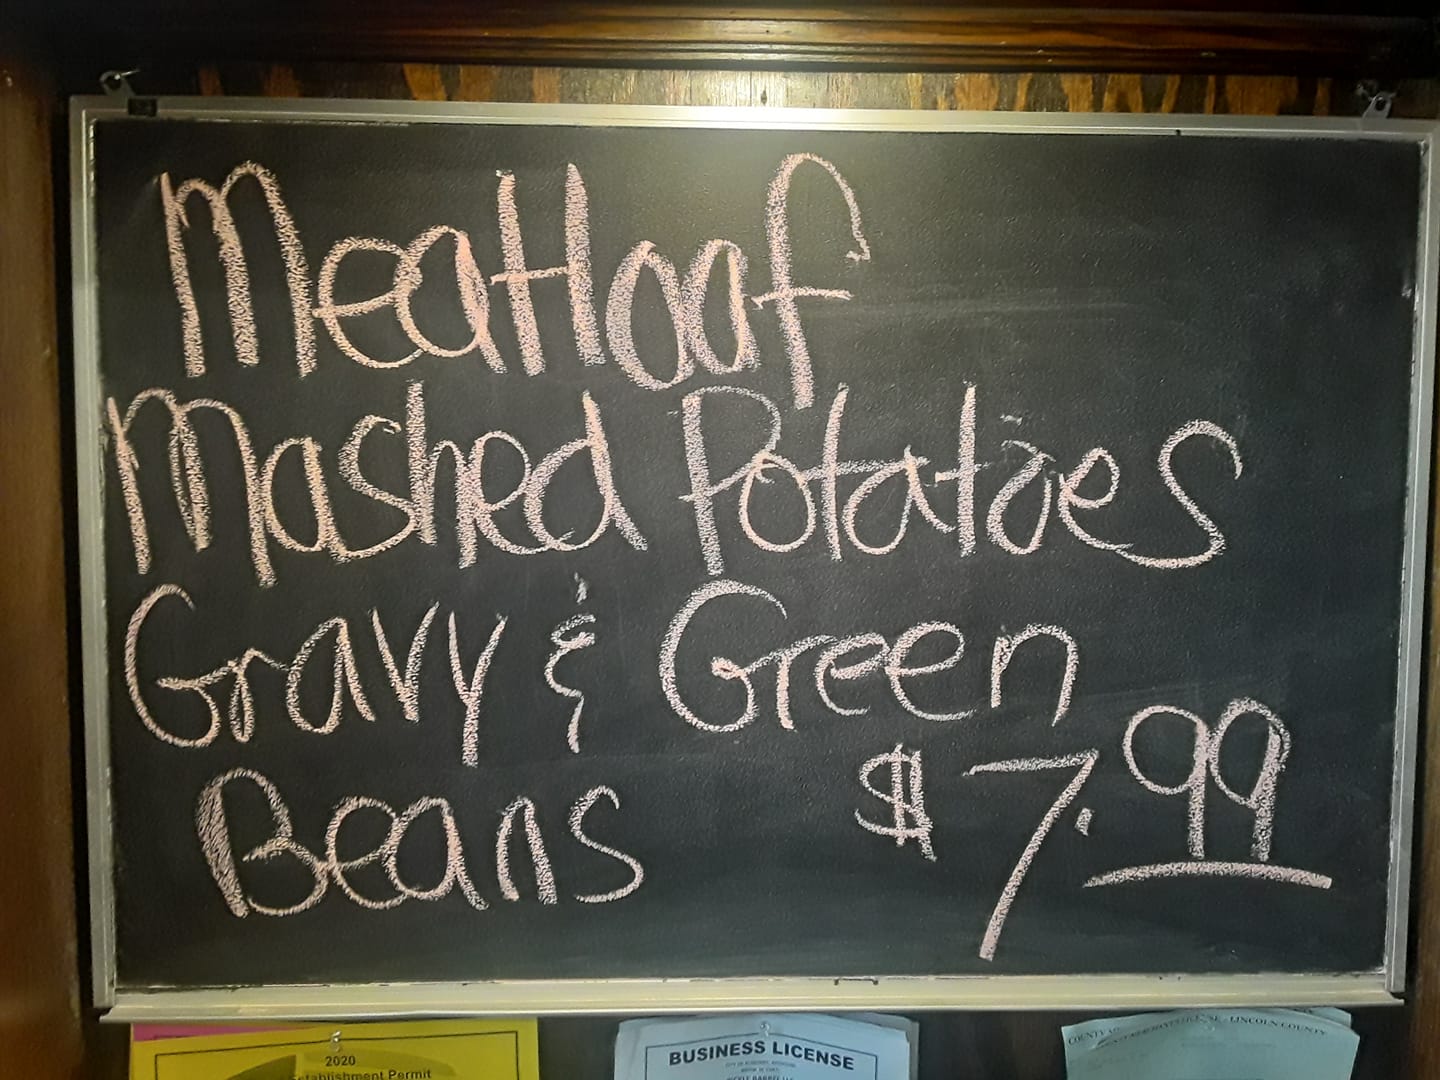 Meatloaf
Mashed Potatoes
Gravy & Green
Beans $7.99
2020
Establishment Permit
BUSINESS LICENSE
LINCOLN COUNTY